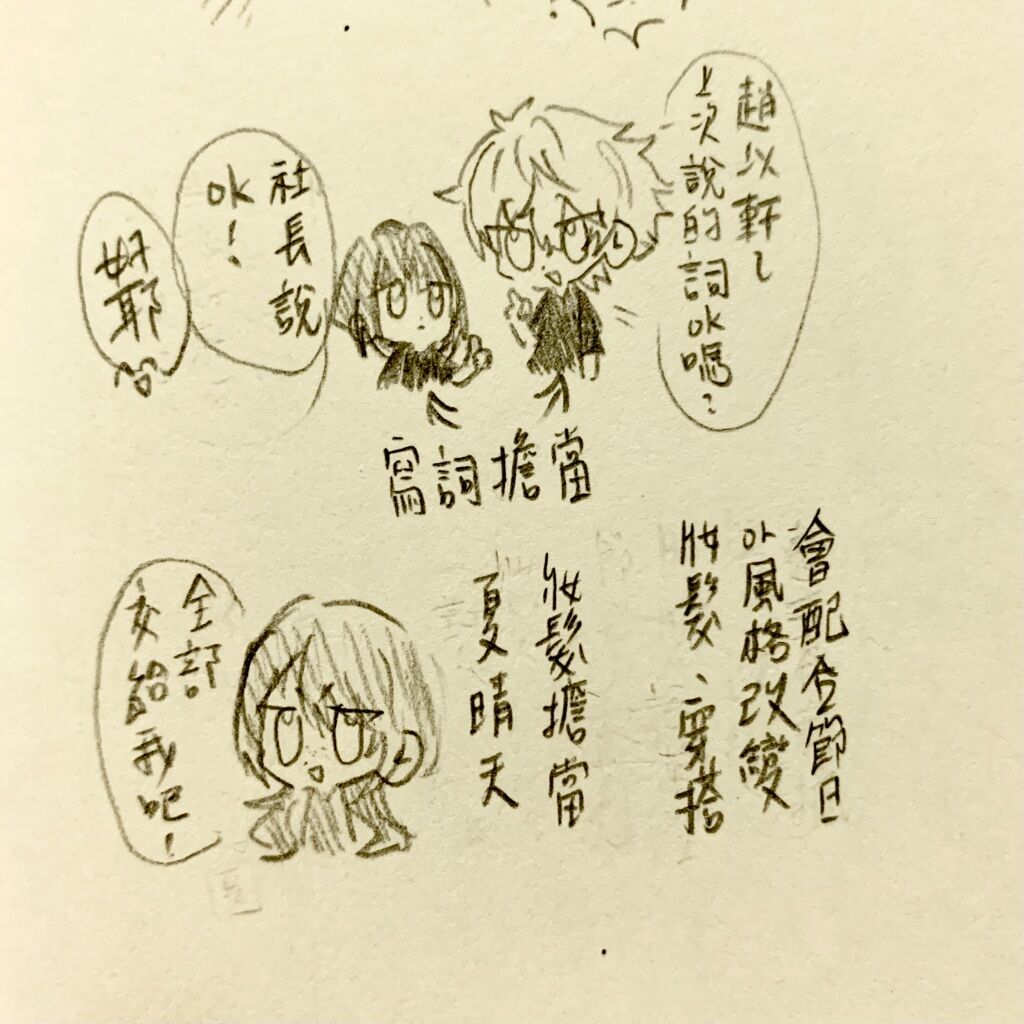 趙以軒～
上次說的詞OK嗎？
社長說
OK！
好耶
寫詞擔當
會配合節日
or風格改變
妝髮、穿搭
妝髮擔當
夏晴天
全部
交給我吧！